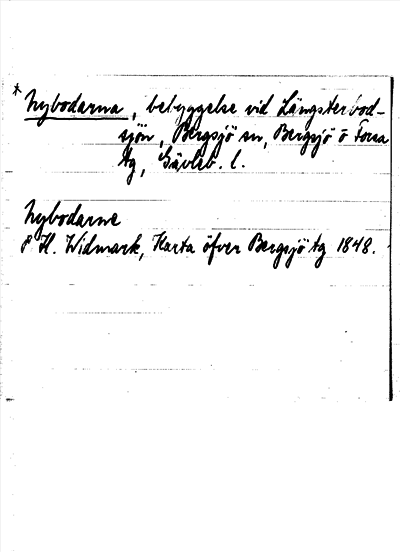 * Nybodarna, bebyggelse vid Långsterbod-
sjön, Bergsjö sn, Bergsjö o Forsa
tg, Gävleb. l.
Nybodarne
P H. Widmark, Karta öfver Bergsjö tg 1848.